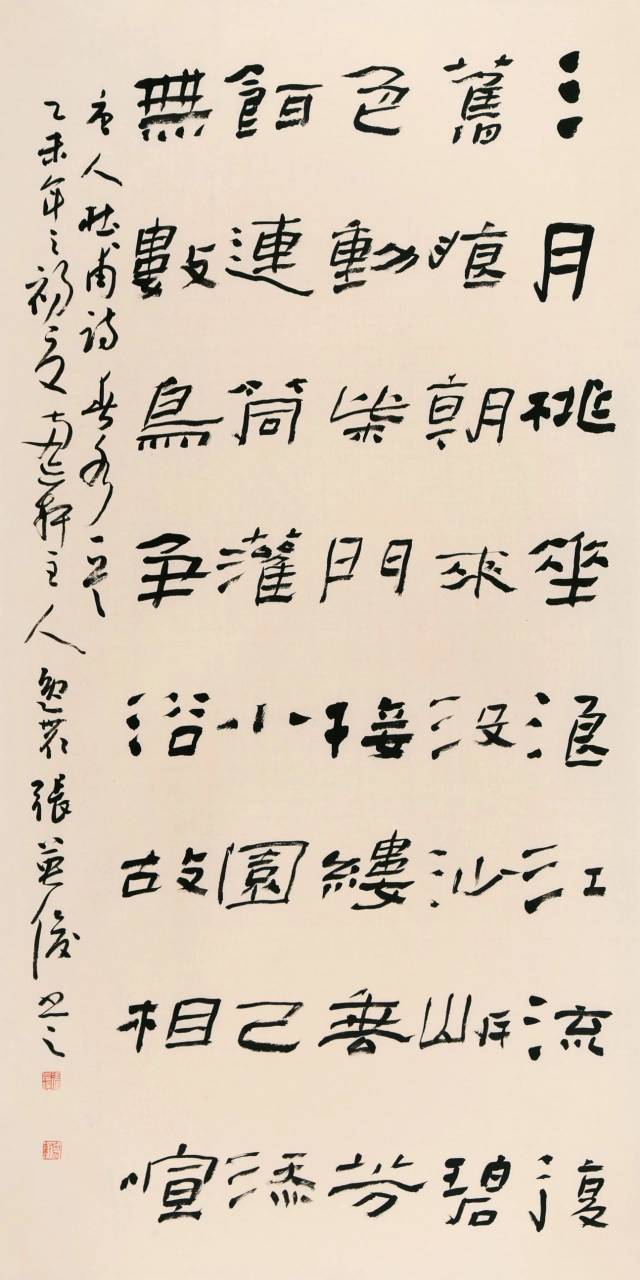 三月桃華浪江流復
舊痕朝來沒沙岸碧
色動柴門接縷垂芳
餌連筒灌小園已添
無數鳥爭浴故相喧
唐人杜甫詩春水一首
乙未年之初夏南軒主人逸農張英俊書之